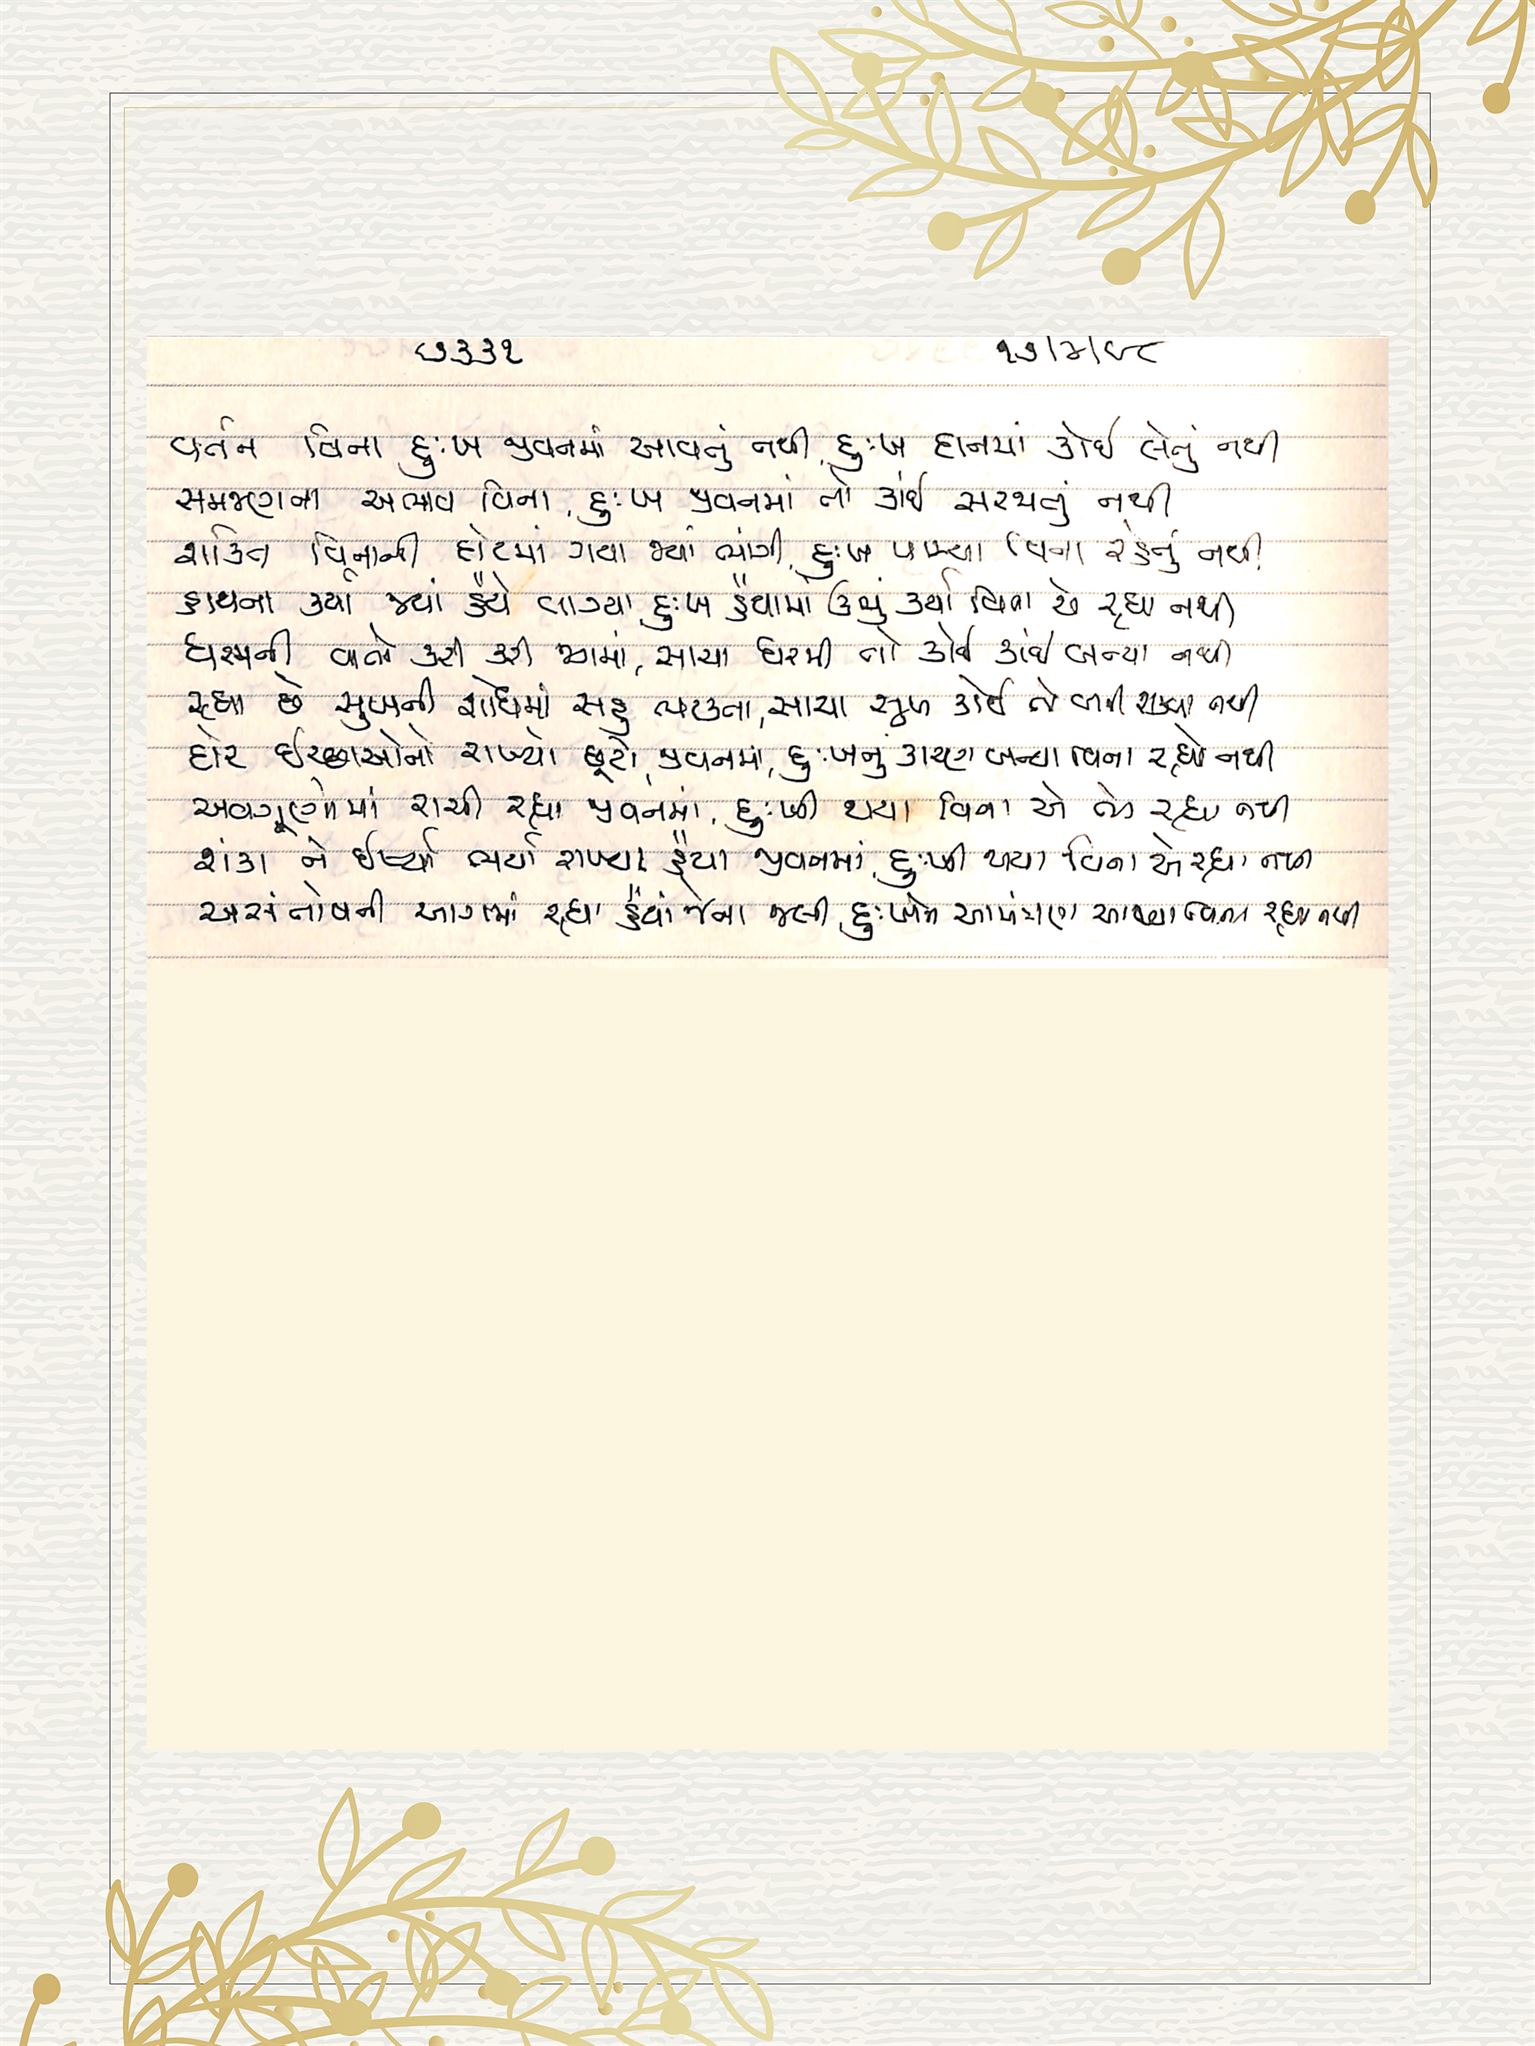 ૭૩૩૧ ૧૭/૪/૯૮
વર્તન વિના દુઃખ જીવનમાં આવતું નથી, દુઃખ દાનમાં કોઈ લેતું નથી
સમજણના અભાવ વિના, દુઃખ જીવનમાં તો કાંઈ સરજાતું નથી
શક્તિ વિનાની દોટમાં ગયા જ્યાં ભાંગી, દુઃખ પામ્યા વિના રહેતું નથી
હાથના કર્યાં જ્યાં હૈયે વાગ્યા, દુઃખ હૈયામાં ઉભું કર્યા વિના એ રહ્યા નથી
ધરમની વાતો કરી કરી જગમાં, સાચા ધરમી તો કોઈ કાંઈ બન્યા નથી
રહ્યા છે સુખની શોધમાં સહુ ભટકતા, સાચા સુખ કોઈ તો બની શક્યા નથી
દોર ઈચ્છાઓનો રાખ્યો છૂટો જીવનમાં, દુઃખનું કારણ બન્યા વિના રહ્યો નથી
અવગુણોમાં રાચી રહ્યા જીવનમાં, દુઃખી થયા વિના એ તો રહ્યા નથી
શંકા ને ઈર્ષ્યા ભર્યા રાખ્યા હૈયા જીવનમાં, દુઃખી થયા વિના એ રહ્યા નથી
અસંતોષની આગમાં રહ્યા હૈયાં જેના જલી, દુઃખને આમંત્રણ આપ્યા વિના રહ્યા નથી